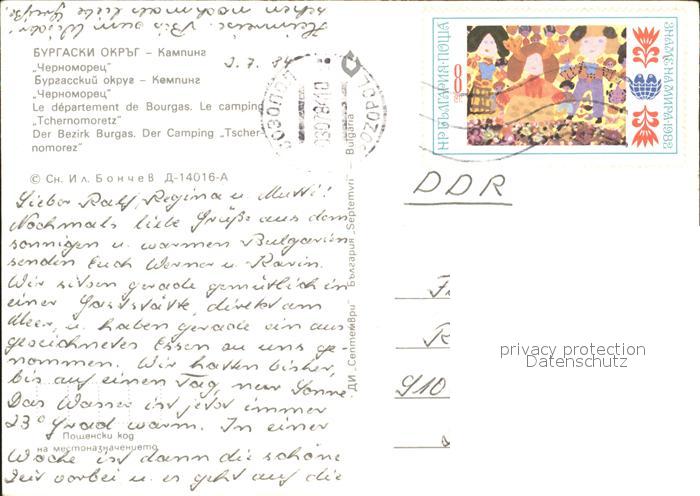 Heimreise. Bis zum Wieder-
sehen nochmals liebe Grüße
БУРГАСКИ ОКРЪГ – Кампинг
„Черноморец"
2.7.84
Бургасский округ – Кемпинг
„Черноморец"
Le département de Bourgas. Le camping
„Tchernomoretz"
Der Bezirk Burgas. Der Camping „Tscher-
nomorez"
© Сн. Ил. Бончев Д-14016-А
Lieber Ralf, Regina u. Mutti!
Nochmals liebe Grüße aus dem
sonnigen u. warmen Bulgarien
senden Euch Werner u. Karin.
Wir sitzen gerade gemütlich in
einer Gaststätte, direkt am
Meer, u. haben gerade ein aus-
gezeichnetes Essen zu uns ge-
nommen. Wir hatten bisher,
bis auf einen Tag, nur Sonne.
Das Wasser ist jetzt immer
23° Grad warm. In einer
Woche ist dann die schöne
Zeit vorbei u. es geht auf die
Пощенски код
на местоназначението
ДИ „Септември" България „Septemvri" – Bulgaria
СОЗОПОЛ
SOZOPOL
НР БЪЛГАРИЯ·ПОЩА
8
ЗНАМЕ НА МИРА·1982
DDR
910
privacy protection
Datenschutz